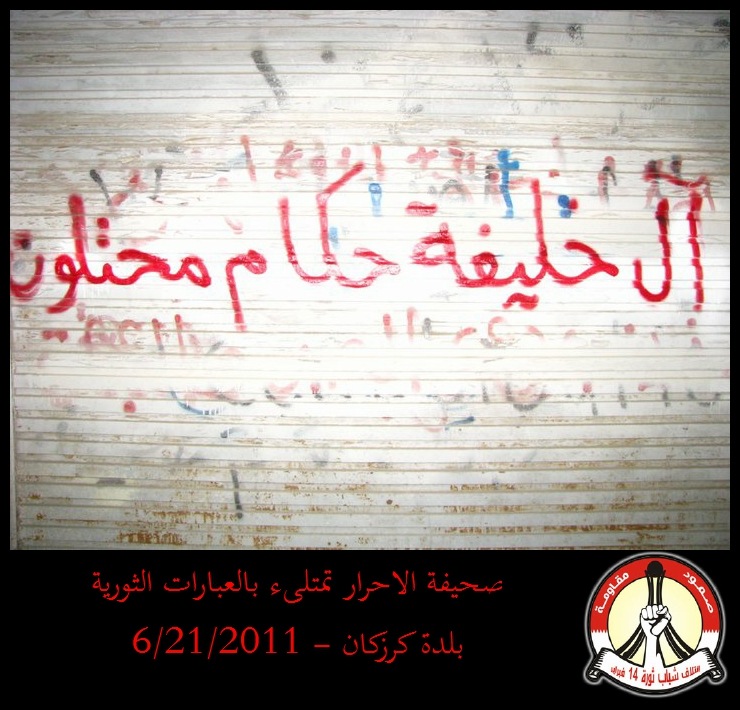 آل خليفة حكام محتلون
صحيفة الاحرار تمتلىء بالعبارات الثورية
بلدة كرزكان – 6/21/2011
صمود مقاومة
ائتلاف شباب ثورة 14 فبراير